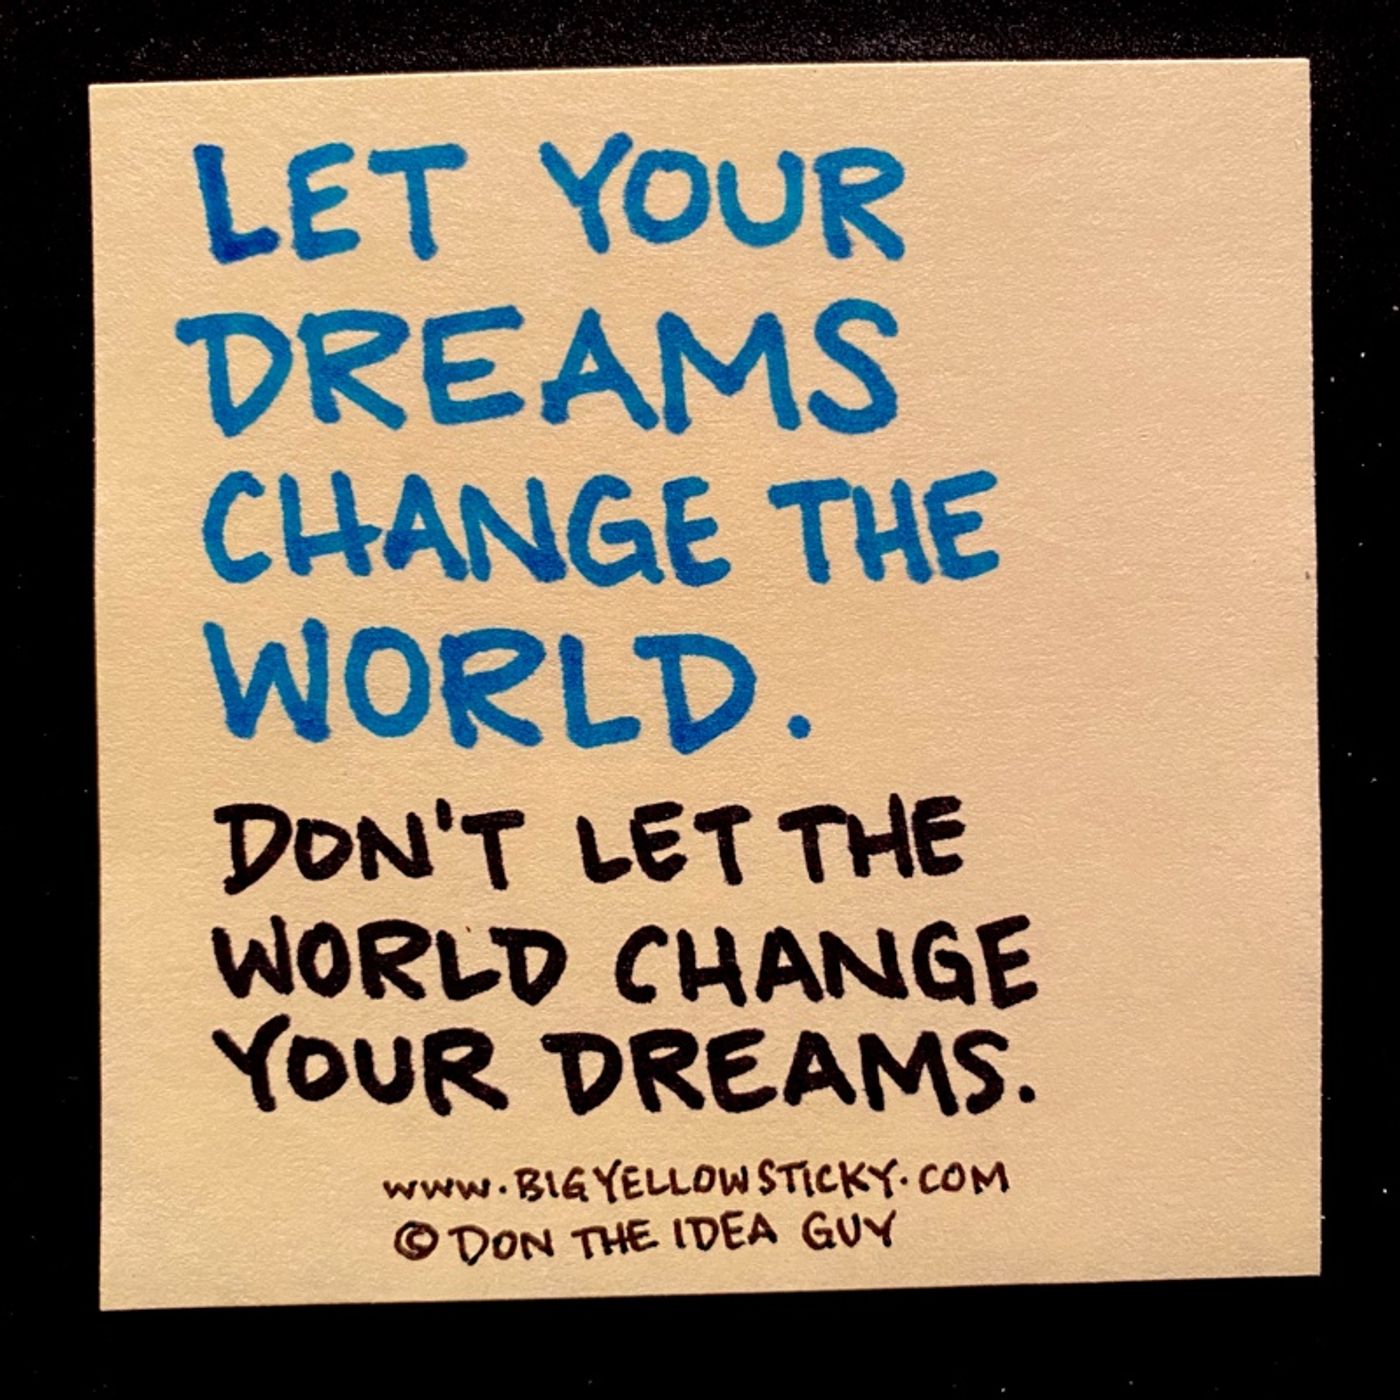 LET YOUR
DREAMS
CHANGE THE
WORLD.
DON'T LET THE
WORLD CHANGE
YOUR DREAMS.
www.BIGYELLOWSTICKY.COM
© DON THE IDEA GUY